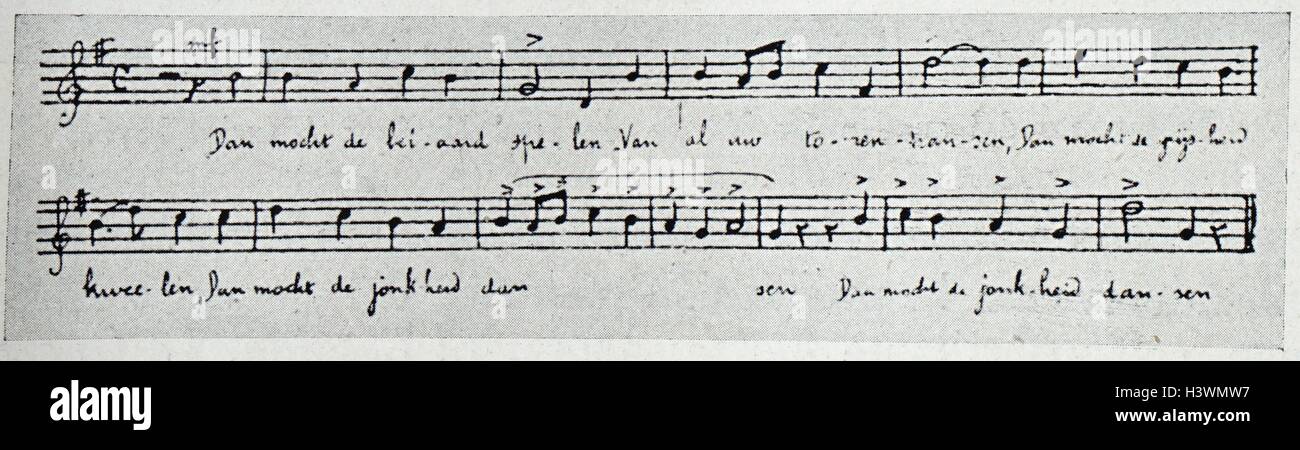 mf
Dan mocht de bei-aard spe-len Van al uw to-ren-tran-sen, Dan mocht de grijs-heid
kwee-len, Dan mocht de jonk-heid dan sen Dan mocht de jonk-heid dan-sen
alamy
H3WMW7
www.alamy.com